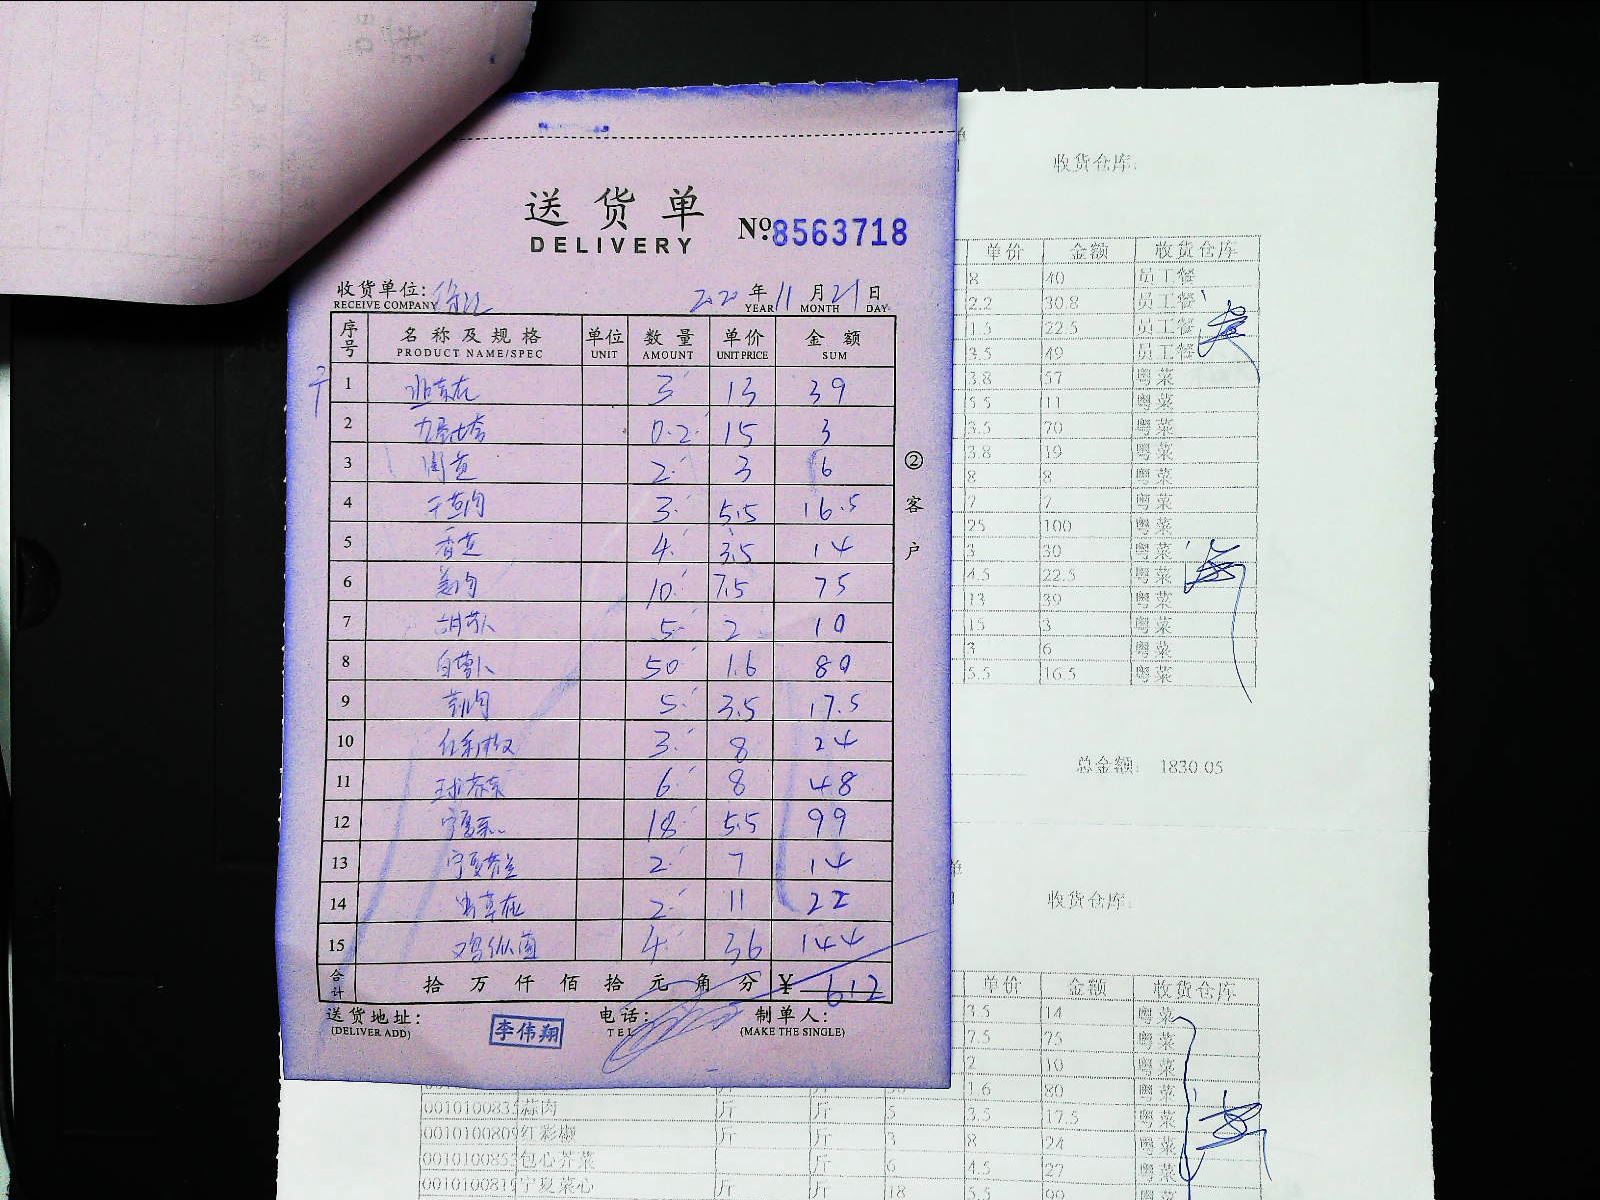 送货单
DELIVERY
№8563718
收货单位:
RECEIVE COMPANY
2020 年 11 月 21 日
YEAR MONTH DAY
序号 名称及规格 单位 数量 单价 金额
PRODUCT NAME/SPEC UNIT AMOUNT UNIT PRICE SUM
1 3 13 39
2 九层塔 0.2 15 3
3 2 3 6
4 干葱肉 3 5.5 16.5
5 香芹 4 3.5 14
6 姜肉 10 7.5 75
7 胡萝卜 5 2 10
8 白萝卜 50 1.6 80
9 蒜肉 5 3.5 17.5
10 红彩椒 3 8 24
11 6 8 48
12 宁夏菜心 18 5.5 99
13 宁夏芥兰 2 7 14
14 虫草花 2 11 22
15 鸡枞菌 4 36 144
合计 拾 万 仟 佰 拾 元 角 分 ¥ 612
送货地址:
(DELIVER ADD)
李伟翔
电话:
TEL
制单人:
(MAKE THE SINGLE)
②客户
收货仓库:
单价 金额 收货仓库
8 40 员工餐
2.2 30.8 员工餐
1.5 22.5 员工餐
3.5 49 员工餐
3.8 57 粤菜
5.5 11 粤菜
3.5 70 粤菜
3.8 19 粤菜
8 8 粤菜
7 7 粤菜
25 100 粤菜
3 30 粤菜
4.5 22.5 粤菜
13 39 粤菜
15 3 粤菜
3 6 粤菜
5.5 16.5 粤菜
总金额: 1830.05
单
收货仓库:
单价 金额 收货仓库
3.5 14 粤菜
7.5 75 粤菜
2 10 粤菜
1.6 80 粤菜
蒜肉 斤 斤 5 3.5 17.5 粤菜
红彩椒 斤 斤 3 8 24 粤菜
包心芥菜 斤 6 4.5 27 粤菜
宁夏菜心 斤 斤 18 5.5 99 粤菜